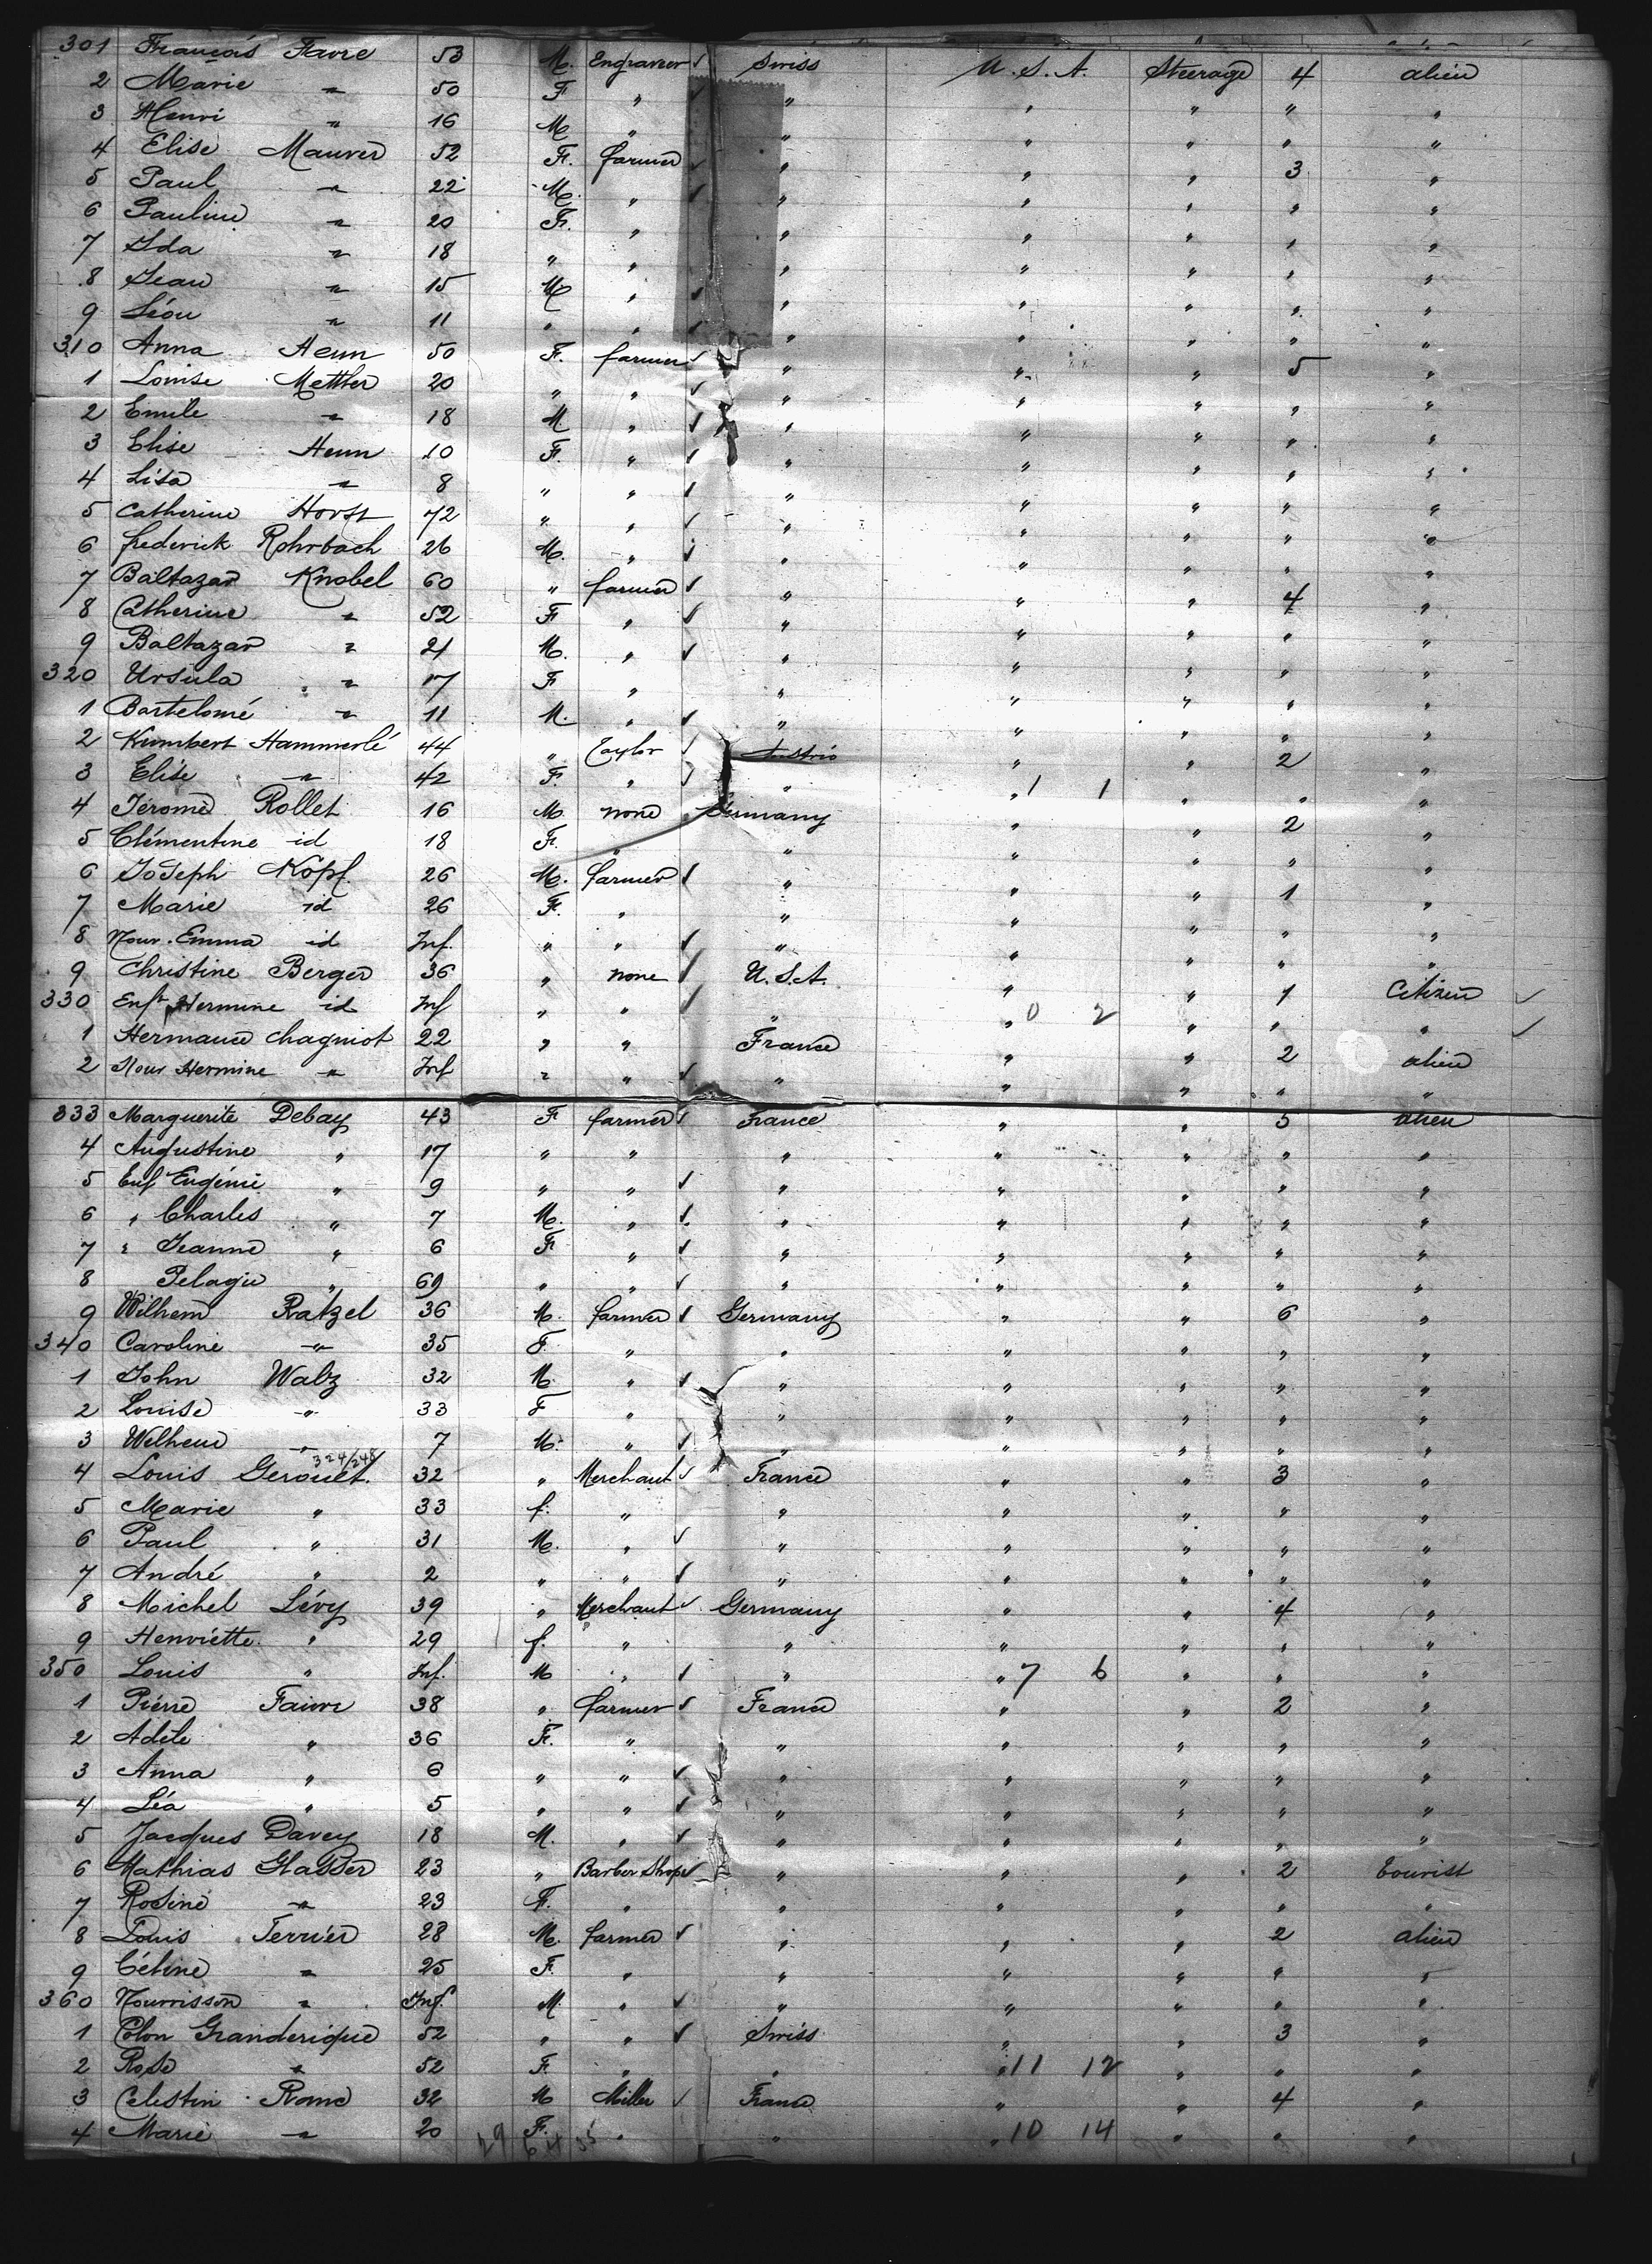 301 François Favre 53 M. Engraver ✓ Swiss U.S.A. Steerage 4 alien
2 Marie " 50 F " ✓ " " " " "
3 Henri " 16 M " " " " " "
4 Elise Maurer 52 F. farmer ✓ " " " 3 "
5 Paul " 22 M. " ✓ " " " " "
6 Pauline " 20 F. " " " " " "
7 Ida " 18 " " " " " " "
8 Jean " 15 M " ✓ " " " " "
9 Léon " 11 " " ✓ " " " " "
310 Anna Henn 50 F. farmer ✓ " " " 5 "
1 Louise Mettler 20 " " ✓ " " " " "
2 Emile " 18 M. " ✓ " " " " "
3 Elise Henn 10 F. " ✓ " " " " "
4 Lisa " 8 " " ✓ " " " " "
5 Catherine Horst 72 " " ✓ " " " " "
6 frederick Rohrbach 26 M. " ✓ " " " " "
7 Baltazar Knobel 60 " farmer ✓ " " " 4 "
8 Catherine " 52 F " ✓ " " " " "
9 Baltazar " 21 M. " ✓ " " " " "
320 Ursula " 17 F " " " " " "
1 Bartelomé " 11 M. " ✓ " " " " "
2 Kumbert Hammerlé 44 " Taylor ✓ Austria " " 2 "
3 Elise " 42 F. " ✓ " " 1 1 " " "
4 Jérome Rollet 16 M. none Germany " " 2 "
5 Clémentine id 18 F. " " " " " "
6 Joseph Kopf. 26 M. farmer ✓ " " " 1 "
7 Marie id 26 F. " " " " " "
8 Nour. Emma id Inf. " " ✓ " " " " "
9 Christine Berger 36 " none ✓ U.S.A. " " 1 Citizen ✓
330 Enft Hermine id Inf " " ✓ " " 0 2 " " " ✓
1 Hermance Chagniot 22 " " France " " 2 alien
2 Nour Hermine " Inf " " ✓ " " " " "
333 Marguerite Debay 43 F farmer ✓ France " " 5 alien
4 Augustine " 17 " " " " " " "
5 Enf Eugénie " 9 " " ✓ " " " " "
6 " Charles " 7 M. " ✓ " " " " "
7 " Jeanne " 6 F " ✓ " " " " "
8 Pelagie " 69 " " ✓ " " " " "
9 Wilhem Ratzel 36 M. farmer ✓ Germany " " 6 "
340 Caroline " 35 F. " " " " " "
1 John Walz 32 M. " ✓ " " " " "
2 Louise " 33 F " " " " " "
3 Welhem " 7 M. " ✓ " " " " "
324/248
4 Louis Gerouet. 32 " Merchant ✓ France " " 3 "
5 Marie " 33 f. " " " " " "
6 Paul " 31 M. " ✓ " " " " "
7 André " 2 " " ✓ " " " " "
8 Michel Lévy 39 " Merchant ✓ Germany " " 4 "
9 Henriette " 29 f. " " " " " "
350 Louis " Inf. M " ✓ " " 7 6 " " "
1 Piérre Faivre 38 " farmer ✓ France " " 2 "
2 Adèle " 36 F. " " " " " "
3 Anna " 6 " " ✓ " " " " "
4 Léa " 5 " " ✓ " " " " "
5 Jacques Davey 18 M. " ✓ " " " " "
6 Mathias Glasser 23 " Barber Shop ✓ " " " 2 tourist
7 Rosine " 23 F. " " " " " "
8 Louis Terrier 28 M. farmer ✓ " " " 2 alien
9 Céline " 25 F. " " " " " "
360 Nourrisson " Inf. M. " ✓ " " " " "
1 Colon Granderique 52 " " ✓ Swiss " " 3 "
2 Rose " 52 F. " " " 11 12 " " "
3 Celestin Rome 32 M Miller ✓ France " " 4 "
4 Marie " 20 F. " " " 10 14 " " "
29 64 35